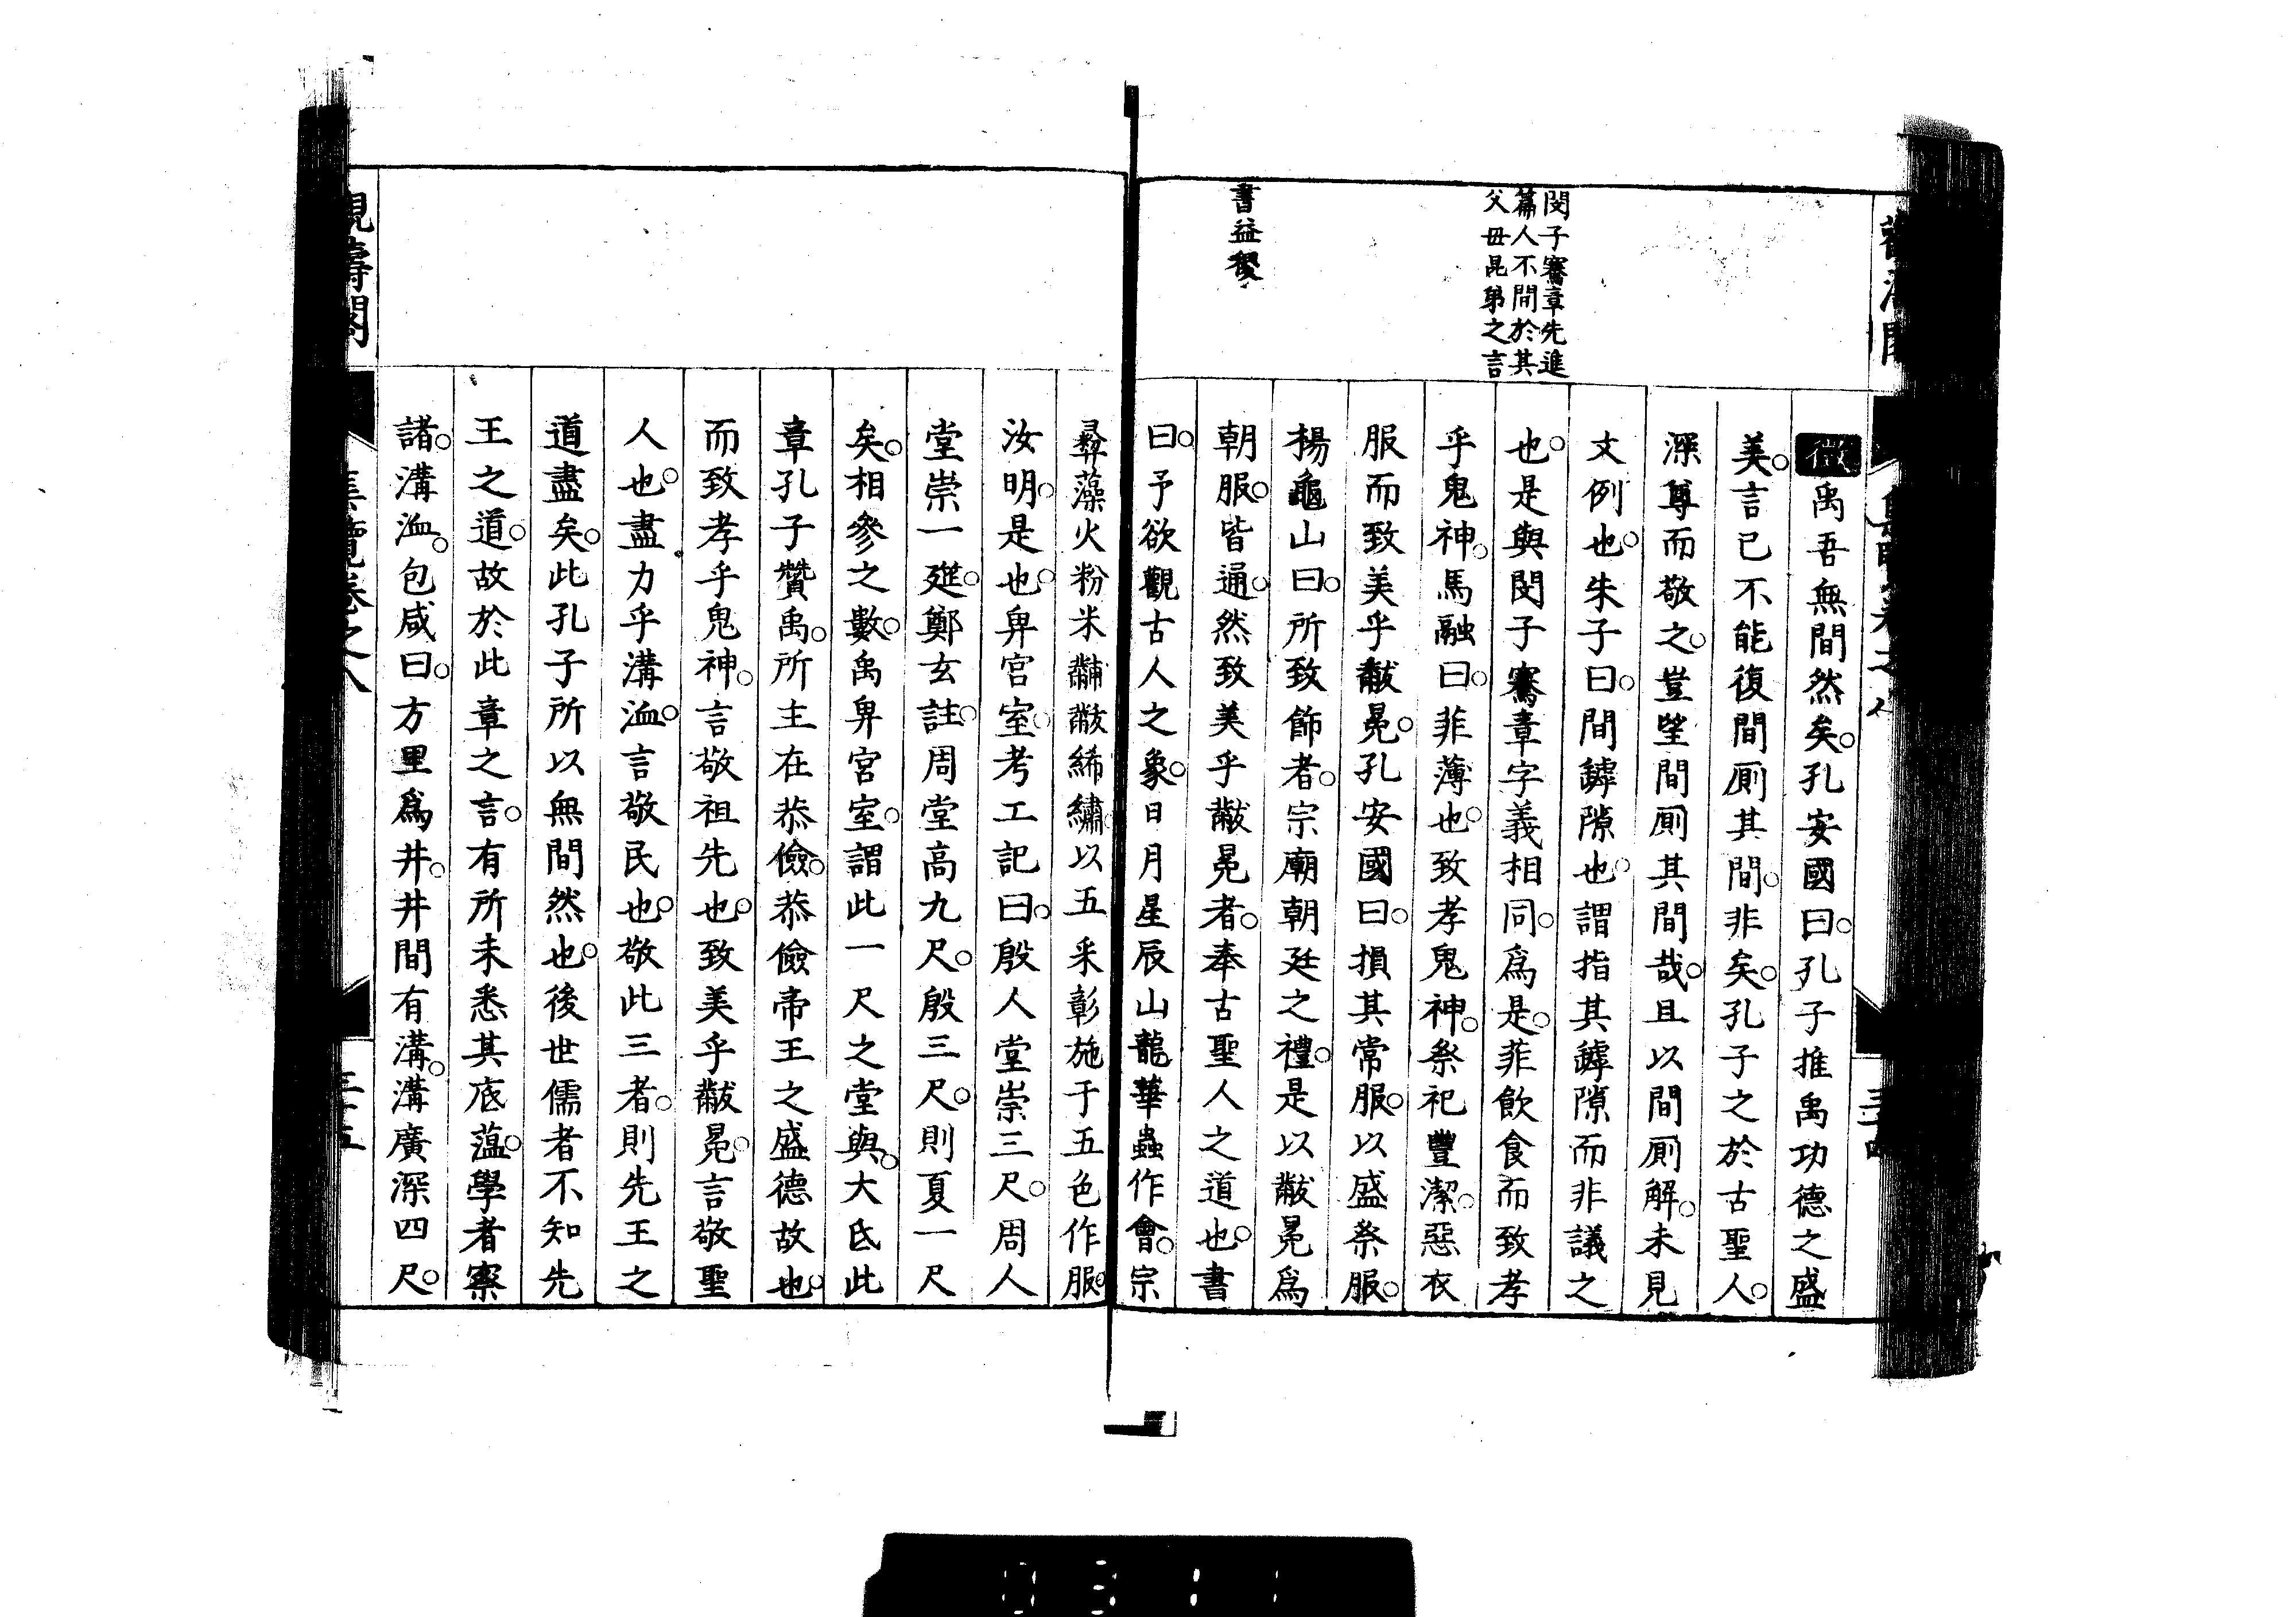 閔子騫章先進
篇人不間於其
父母昆弟之言
書益稷
徵禹吾無間然矣。孔安國曰。孔子推禹功德之盛
美。言已不能復間厠其間。非矣。孔子之於古聖人。
深尊而敬之。豈望間厠其間哉。且以間厠解。未見
文例也。朱子曰。間罅隙也。謂指其罅隙而非議之
也。是與閔子騫章字義相同。爲是。菲飲食而致孝
乎鬼神。馬融曰。菲薄也。致孝鬼神。祭祀豐潔。惡衣
服而致美乎黻冕。孔安國曰。損其常服。以盛祭服。
楊龜山曰。所致飾者。宗廟朝廷之禮。是以黻冕爲
朝服。皆通。然致美乎黻冕者。奉古聖人之道也。書
曰。予欲觀古人之象。日月星辰山龍華蟲作會。宗
彝藻火粉米黼黻絺繡。以五采彰施于五色作服。
汝明。是也。卑宮室。考工記曰。殷人堂崇三尺。周人
堂崇一筵。鄭玄註。周堂高九尺。殷三尺。則夏一尺
矣。相參之數。禹卑宮室。謂此一尺之堂與。大氐此
章孔子贊禹。所主在恭儉。恭儉帝王之盛德故也。
而致孝乎鬼神。言敬祖先也。致美乎黻冕。言敬聖
人也。盡力乎溝洫。言敬民也。敬此三者。則先王之
道盡矣。此孔子所以無間然也。後世儒者不知先
王之道。故於此章之言。有所未悉其底蘊。學者察
諸。溝洫。包咸曰。方里爲井。井間有溝。溝廣深四尺。
觀濤閣
集覽卷之八
三十五
0311